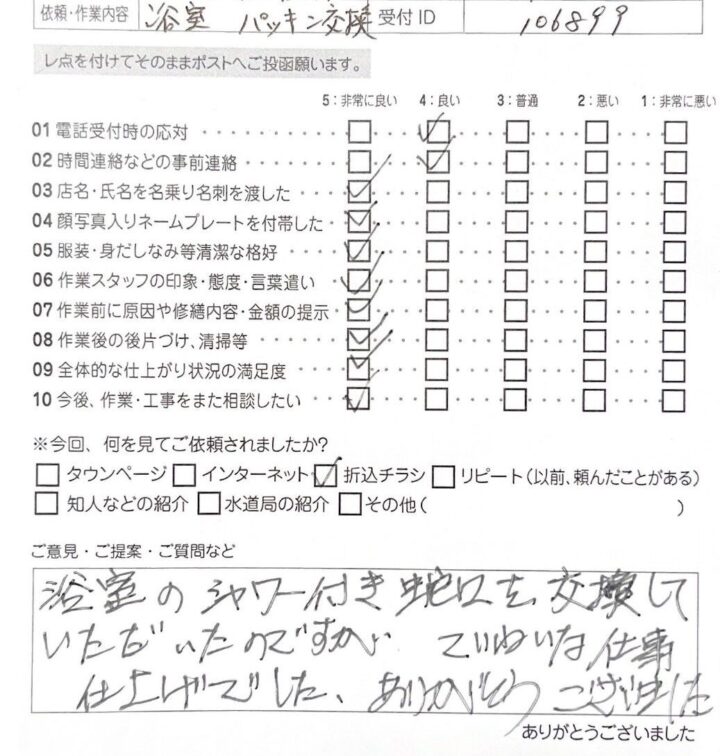 依頼・作業内容 浴室 パッキン交換 受付ID 106899
レ点を付けてそのままポストへご投函願います。
5:非常に良い 4:良い 3:普通 2:悪い 1:非常に悪い
01 電話受付時の応対
02 時間連絡などの事前連絡
03 店名・氏名を名乗り名刺を渡した
04 顔写真入りネームプレートを付帯した
05 服装・身だしなみ等清潔な格好
06 作業スタッフの印象・態度・言葉遣い
07 作業前に原因や修繕内容・金額の提示
08 作業後の後片づけ、清掃等
09 全体的な仕上がり状況の満足度
10 今後、作業・工事をまた相談したい
※今回、何を見てご依頼されましたか?
タウンページ インターネット 折込チラシ リピート(以前、頼んだことがある)
知人などの紹介 水道局の紹介 その他( )
ご意見・ご提案・ご質問など
浴室のシャワー付き蛇口を交換して
いただいたのですが ていねいな仕事
仕上げでした、ありがとうございました
ありがとうございました